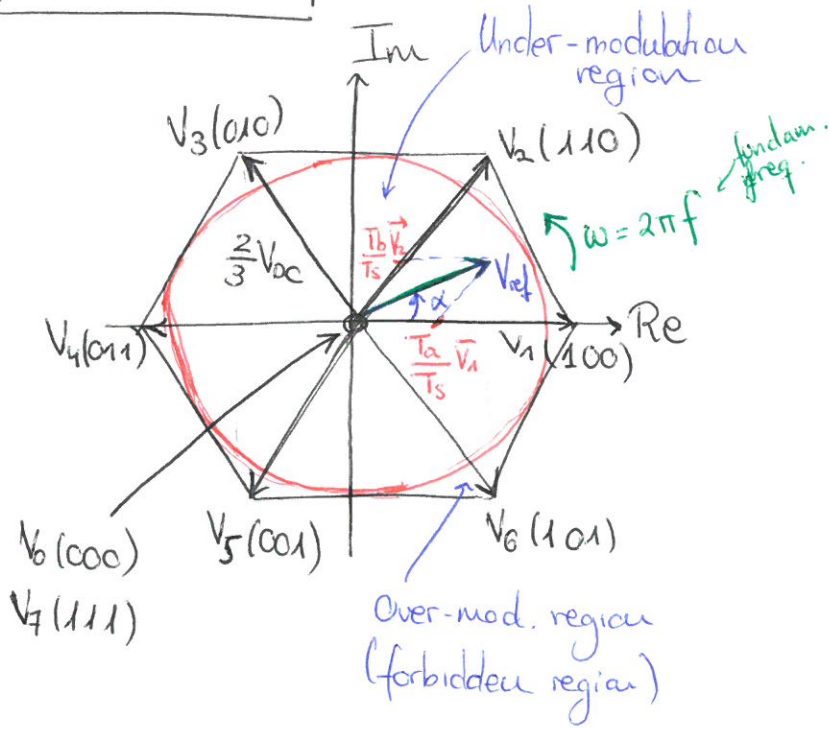 Im
Under-modulation
region
V3(010)
V2(110)
fundam.
freq.
ω = 2πf
2/3 VDC
Tb/Ts V⃗2
Vref
α
V4(011)
Ta/Ts V̄1
V1(100)
Re
V0(000)
V7(111)
V5(001)
V6(101)
Over-mod. region
(forbidden region)